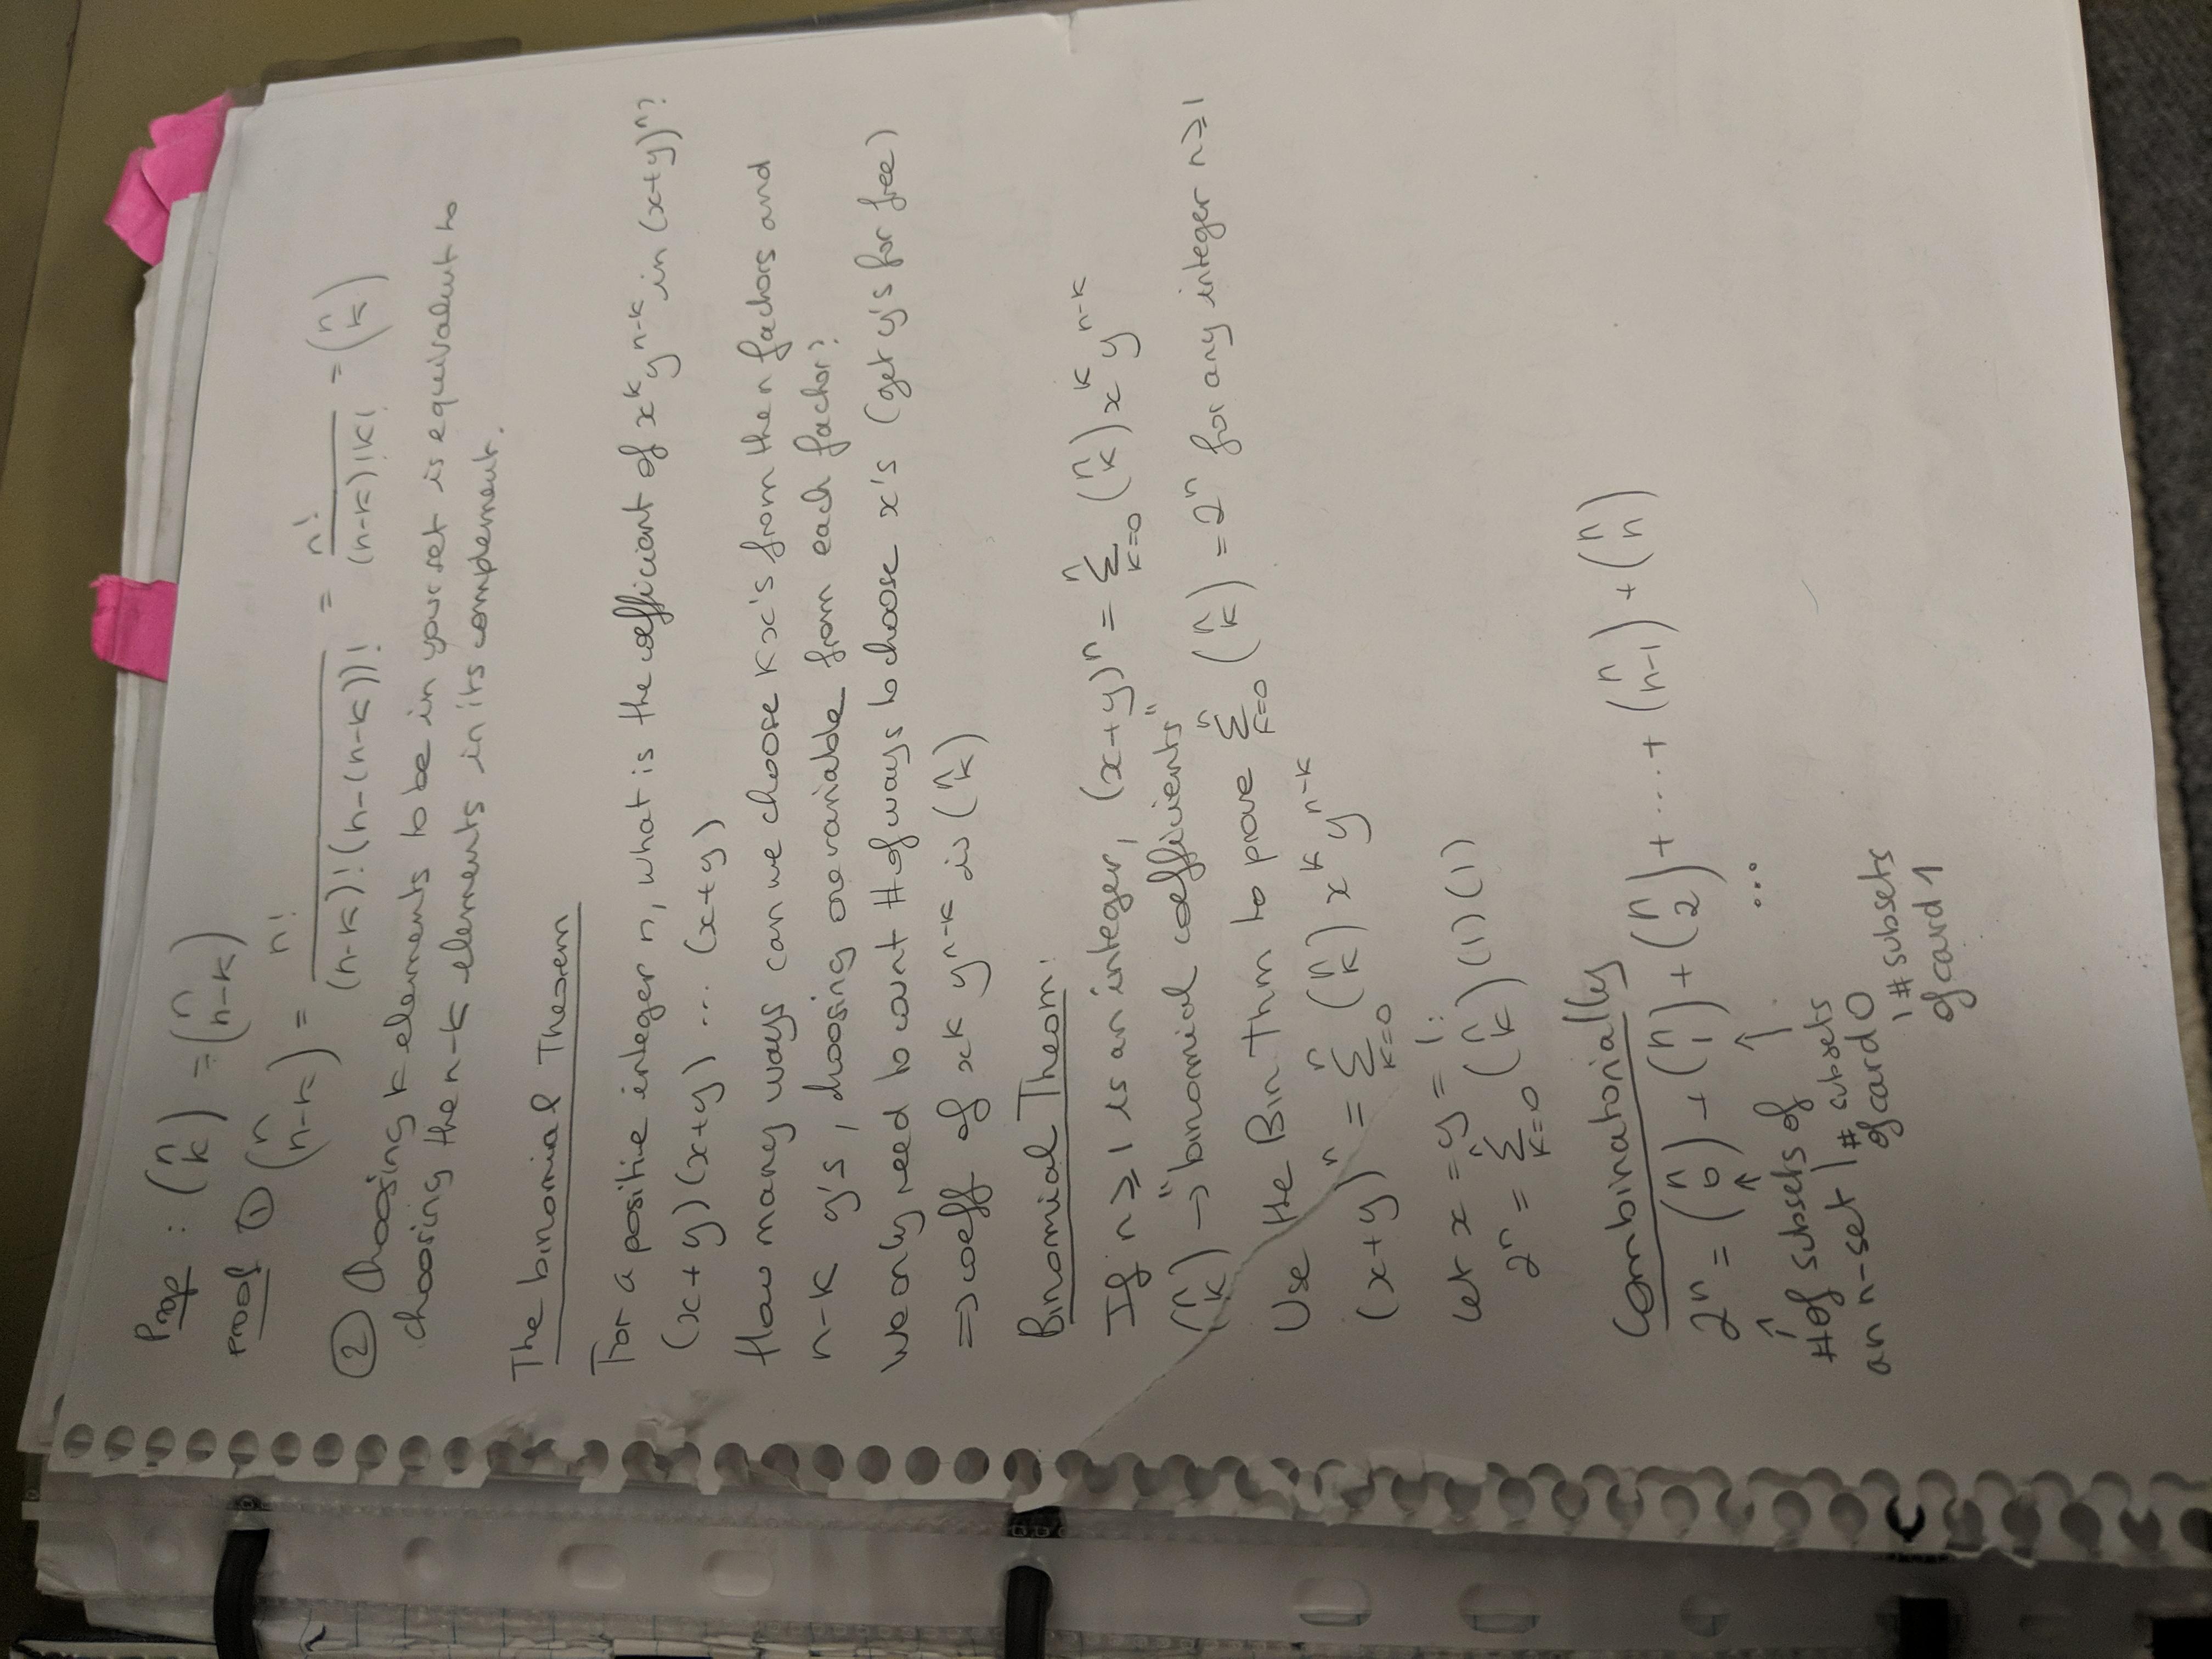 Prop : (n k) = (n n-k)
Proof ① (n n-k) = n! / (n-k)!(n-(n-k))! = n! / (n-k)!k! = (n k)
② Choosing k elements to be in your set is equivalent to
choosing the n-k elements in its complement.
The binomial Theorem
For a positive integer n, what is the coefficient of x^k y^{n-k} in (x+y)^n?
(x+y)(x+y) ... (x+y)
How many ways can we choose k x's from the n factors and
n-k y's, choosing one variable from each factor?
We only need to count # of ways to choose x's (get y's for free)
⇒ coeff of x^k y^{n-k} is (n k)
Binomial Theom:
If n ≥ 1 is an integer, (x+y)^n = Σ_{k=0}^{n} (n k) x^k y^{n-k}
(n k) → "binomial coefficients"
Use the Bin Thm to prove Σ_{k=0}^{n} (n k) = 2^n for any integer n ≥ 1
(x+y)^n = Σ_{k=0}^{n} (n k) x^k y^{n-k}
Let x = y = 1:
2^n = Σ_{k=0}^{n} (n k) (1)(1)
Combinatorially
2^n = (n 0) + (n 1) + (n 2) + ... + (n n-1) + (n n)
↑ ↑ ↑ ...
# of subsets of
an n-set | # subsets
of card 0
| # subsets
of card 1